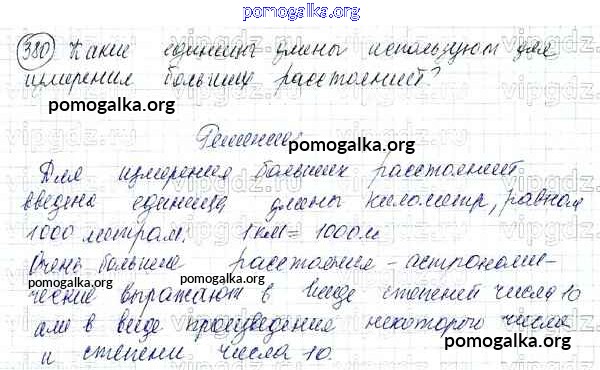 pomogalka.org
380 Какие единицы длины используют для
измерения больших расстояний?
pomogalka.org
pomogalka.org
Решение:
Для измерения больших расстояний
введена единица длины километр, равная
pomogalka.org
1000 метрам. 1 км = 1000 м
Очень большие расстояния - астрономи-
pomogalka.org
ческие выражают в виде степеней числа 10
или в виде произведение некоторого числа
и степени числа 10.
pomogalka.org
pomogalka.org